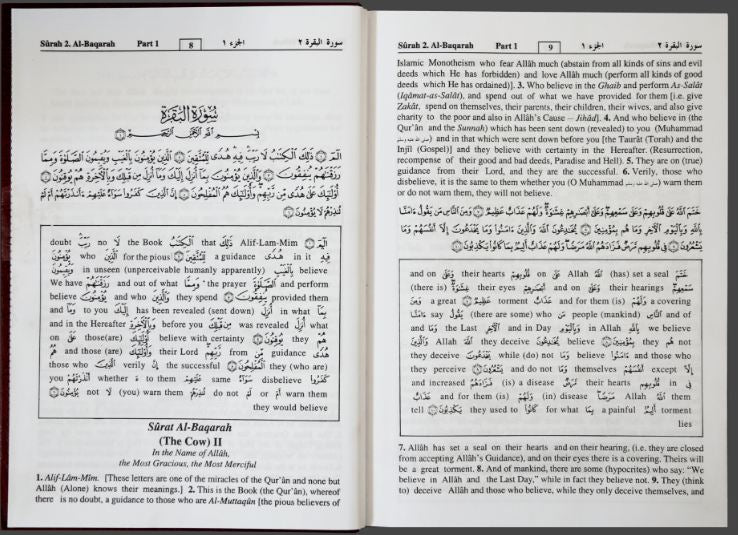 Sûrah 2. Al-Baqarah Part 1 8 الجزء ١ سورة البقرة ٢
سُورَةُ البَقَرَةِ
بِسْمِ اللَّهِ الرَّحْمَٰنِ الرَّحِيمِ
الٓمٓ ۝ ذَٰلِكَ الْكِتَٰبُ لَا رَيْبَ فِيهِ هُدًى لِّلْمُتَّقِينَ ۝ الَّذِينَ يُؤْمِنُونَ بِالْغَيْبِ وَيُقِيمُونَ الصَّلَوٰةَ وَمِمَّا
رَزَقْنَٰهُمْ يُنفِقُونَ ۝ وَالَّذِينَ يُؤْمِنُونَ بِمَآ أُنزِلَ إِلَيْكَ وَمَآ أُنزِلَ مِن قَبْلِكَ وَبِالْآخِرَةِ هُمْ يُوقِنُونَ ۝
أُولَٰٓئِكَ عَلَىٰ هُدًى مِّن رَّبِّهِمْ وَأُولَٰٓئِكَ هُمُ الْمُفْلِحُونَ ۝ إِنَّ الَّذِينَ كَفَرُوا سَوَآءٌ عَلَيْهِمْ ءَأَنذَرْتَهُمْ أَمْ لَمْ
تُنذِرْهُمْ لَا يُؤْمِنُونَ ۝
الٓمٓ Alif-Lam-Mim ذَٰلِكَ that الْكِتَٰبُ the Book لَا no رَيْبَ doubt
فِيهِ in it هُدًى a guidance لِّلْمُتَّقِينَ for the pious الَّذِينَ who يُؤْمِنُونَ
believe بِالْغَيْبِ in unseen (unperceivable humanly apparently) وَيُقِيمُونَ
and perform الصَّلَوٰةَ the prayer وَمِمَّا and out of what رَزَقْنَٰهُمْ We have
provided them يُنفِقُونَ they spend وَالَّذِينَ and who يُؤْمِنُونَ believe
بِمَآ in what أُنزِلَ has been revealed (sent down) إِلَيْكَ to you وَمَآ and
what أُنزِلَ was revealed مِن قَبْلِكَ before you وَبِالْآخِرَةِ and in the Hereafter
هُمْ they يُوقِنُونَ believe with certainty أُولَٰٓئِكَ those(are) عَلَىٰ on
هُدًى guidance مِّن from رَّبِّهِمْ their Lord وَأُولَٰٓئِكَ and those (are) هُمُ
they (who are) الْمُفْلِحُونَ the successful إِنَّ verily الَّذِينَ those who
كَفَرُوا disbelieve سَوَآءٌ same عَلَيْهِمْ to them ءَ whether أَنذَرْتَهُمْ you
warn them أَمْ or لَمْ do not تُنذِرْهُمْ (you) warn them لَا not يُؤْمِنُونَ
they would believe
Sûrat Al-Baqarah
(The Cow) II
In the Name of Allâh,
the Most Gracious, the Most Merciful
1. Alif-Lâm-Mîm. [These letters are one of the miracles of the Qur'ân and none but
Allâh (Alone) knows their meanings.] 2. This is the Book (the Qur'ân), whereof
there is no doubt, a guidance to those who are Al-Muttaqûn [the pious believers of
Sûrah 2. Al-Baqarah Part 1 9 الجزء ١ سورة البقرة ٢
Islamic Monotheism who fear Allâh much (abstain from all kinds of sins and evil
deeds which He has forbidden) and love Allâh much (perform all kinds of good
deeds which He has ordained)]. 3. Who believe in the Ghaib and perform As-Salât
(Iqâmat-as-Salât), and spend out of what we have provided for them [i.e. give
Zakât, spend on themselves, their parents, their children, their wives, and also give
charity to the poor and also in Allâh's Cause – Jihâd]. 4. And who believe in (the
Qur'ân and the Sunnah) which has been sent down (revealed) to you (Muhammad
صلى الله عليه وسلم) and in that which were sent down before you [the Taurât (Torah) and the
Injîl (Gospel)] and they believe with certainty in the Hereafter. (Resurrection,
recompense of their good and bad deeds, Paradise and Hell). 5. They are on (true)
guidance from their Lord, and they are the successful. 6. Verily, those who
disbelieve, it is the same to them whether you (O Muhammad صلى الله عليه وسلم) warn them
or do not warn them, they will not believe.
خَتَمَ اللَّهُ عَلَىٰ قُلُوبِهِمْ وَعَلَىٰ سَمْعِهِمْ وَعَلَىٰٓ أَبْصَٰرِهِمْ غِشَٰوَةٌ وَلَهُمْ عَذَابٌ عَظِيمٌ ۝ وَمِنَ النَّاسِ مَن يَقُولُ ءَامَنَّا
بِاللَّهِ وَبِالْيَوْمِ الْآخِرِ وَمَا هُم بِمُؤْمِنِينَ ۝ يُخَٰدِعُونَ اللَّهَ وَالَّذِينَ ءَامَنُوا وَمَا يَخْدَعُونَ إِلَّآ أَنفُسَهُمْ وَمَا
يَشْعُرُونَ ۝ فِي قُلُوبِهِم مَّرَضٌ فَزَادَهُمُ اللَّهُ مَرَضًا وَلَهُمْ عَذَابٌ أَلِيمٌۢ بِمَا كَانُوا يَكْذِبُونَ ۝
خَتَمَ (has) set a seal اللَّهُ Allah عَلَىٰ on قُلُوبِهِمْ their hearts وَعَلَىٰ and on
سَمْعِهِمْ their hearings وَعَلَىٰٓ and on أَبْصَٰرِهِمْ their eyes غِشَٰوَةٌ (there is)
a covering وَلَهُمْ and for them (is) عَذَابٌ torment عَظِيمٌ a great وَمِنَ
and of النَّاسِ people (mankind) مَن (there are some) who يَقُولُ say ءَامَنَّا
we believe بِاللَّهِ in Allah وَبِالْيَوْمِ and in Day الْآخِرِ the Last وَمَا and
not هُم they بِمُؤْمِنِينَ believe يُخَٰدِعُونَ they deceive اللَّهَ Allah وَالَّذِينَ
and those who ءَامَنُوا believe وَمَا while (do) not يَخْدَعُونَ they deceive
إِلَّآ except أَنفُسَهُمْ themselves وَمَا and do not يَشْعُرُونَ they perceive
فِي in قُلُوبِهِم their hearts مَّرَضٌ (is) a disease فَزَادَهُمُ and increased
them اللَّهُ Allah مَرَضًا disease وَلَهُمْ and for them (is) عَذَابٌ
torment أَلِيمٌ a painful بِمَا for what كَانُوا they used to يَكْذِبُونَ tell
lies
7. Allâh has set a seal on their hearts and on their hearing, (i.e. they are closed
from accepting Allâh's Guidance), and on their eyes there is a covering. Theirs will
be a great torment. 8. And of mankind, there are some (hypocrites) who say: "We
believe in Allâh and the Last Day," while in fact they believe not. 9. They (think
to) deceive Allâh and those who believe, while they only deceive themselves, and